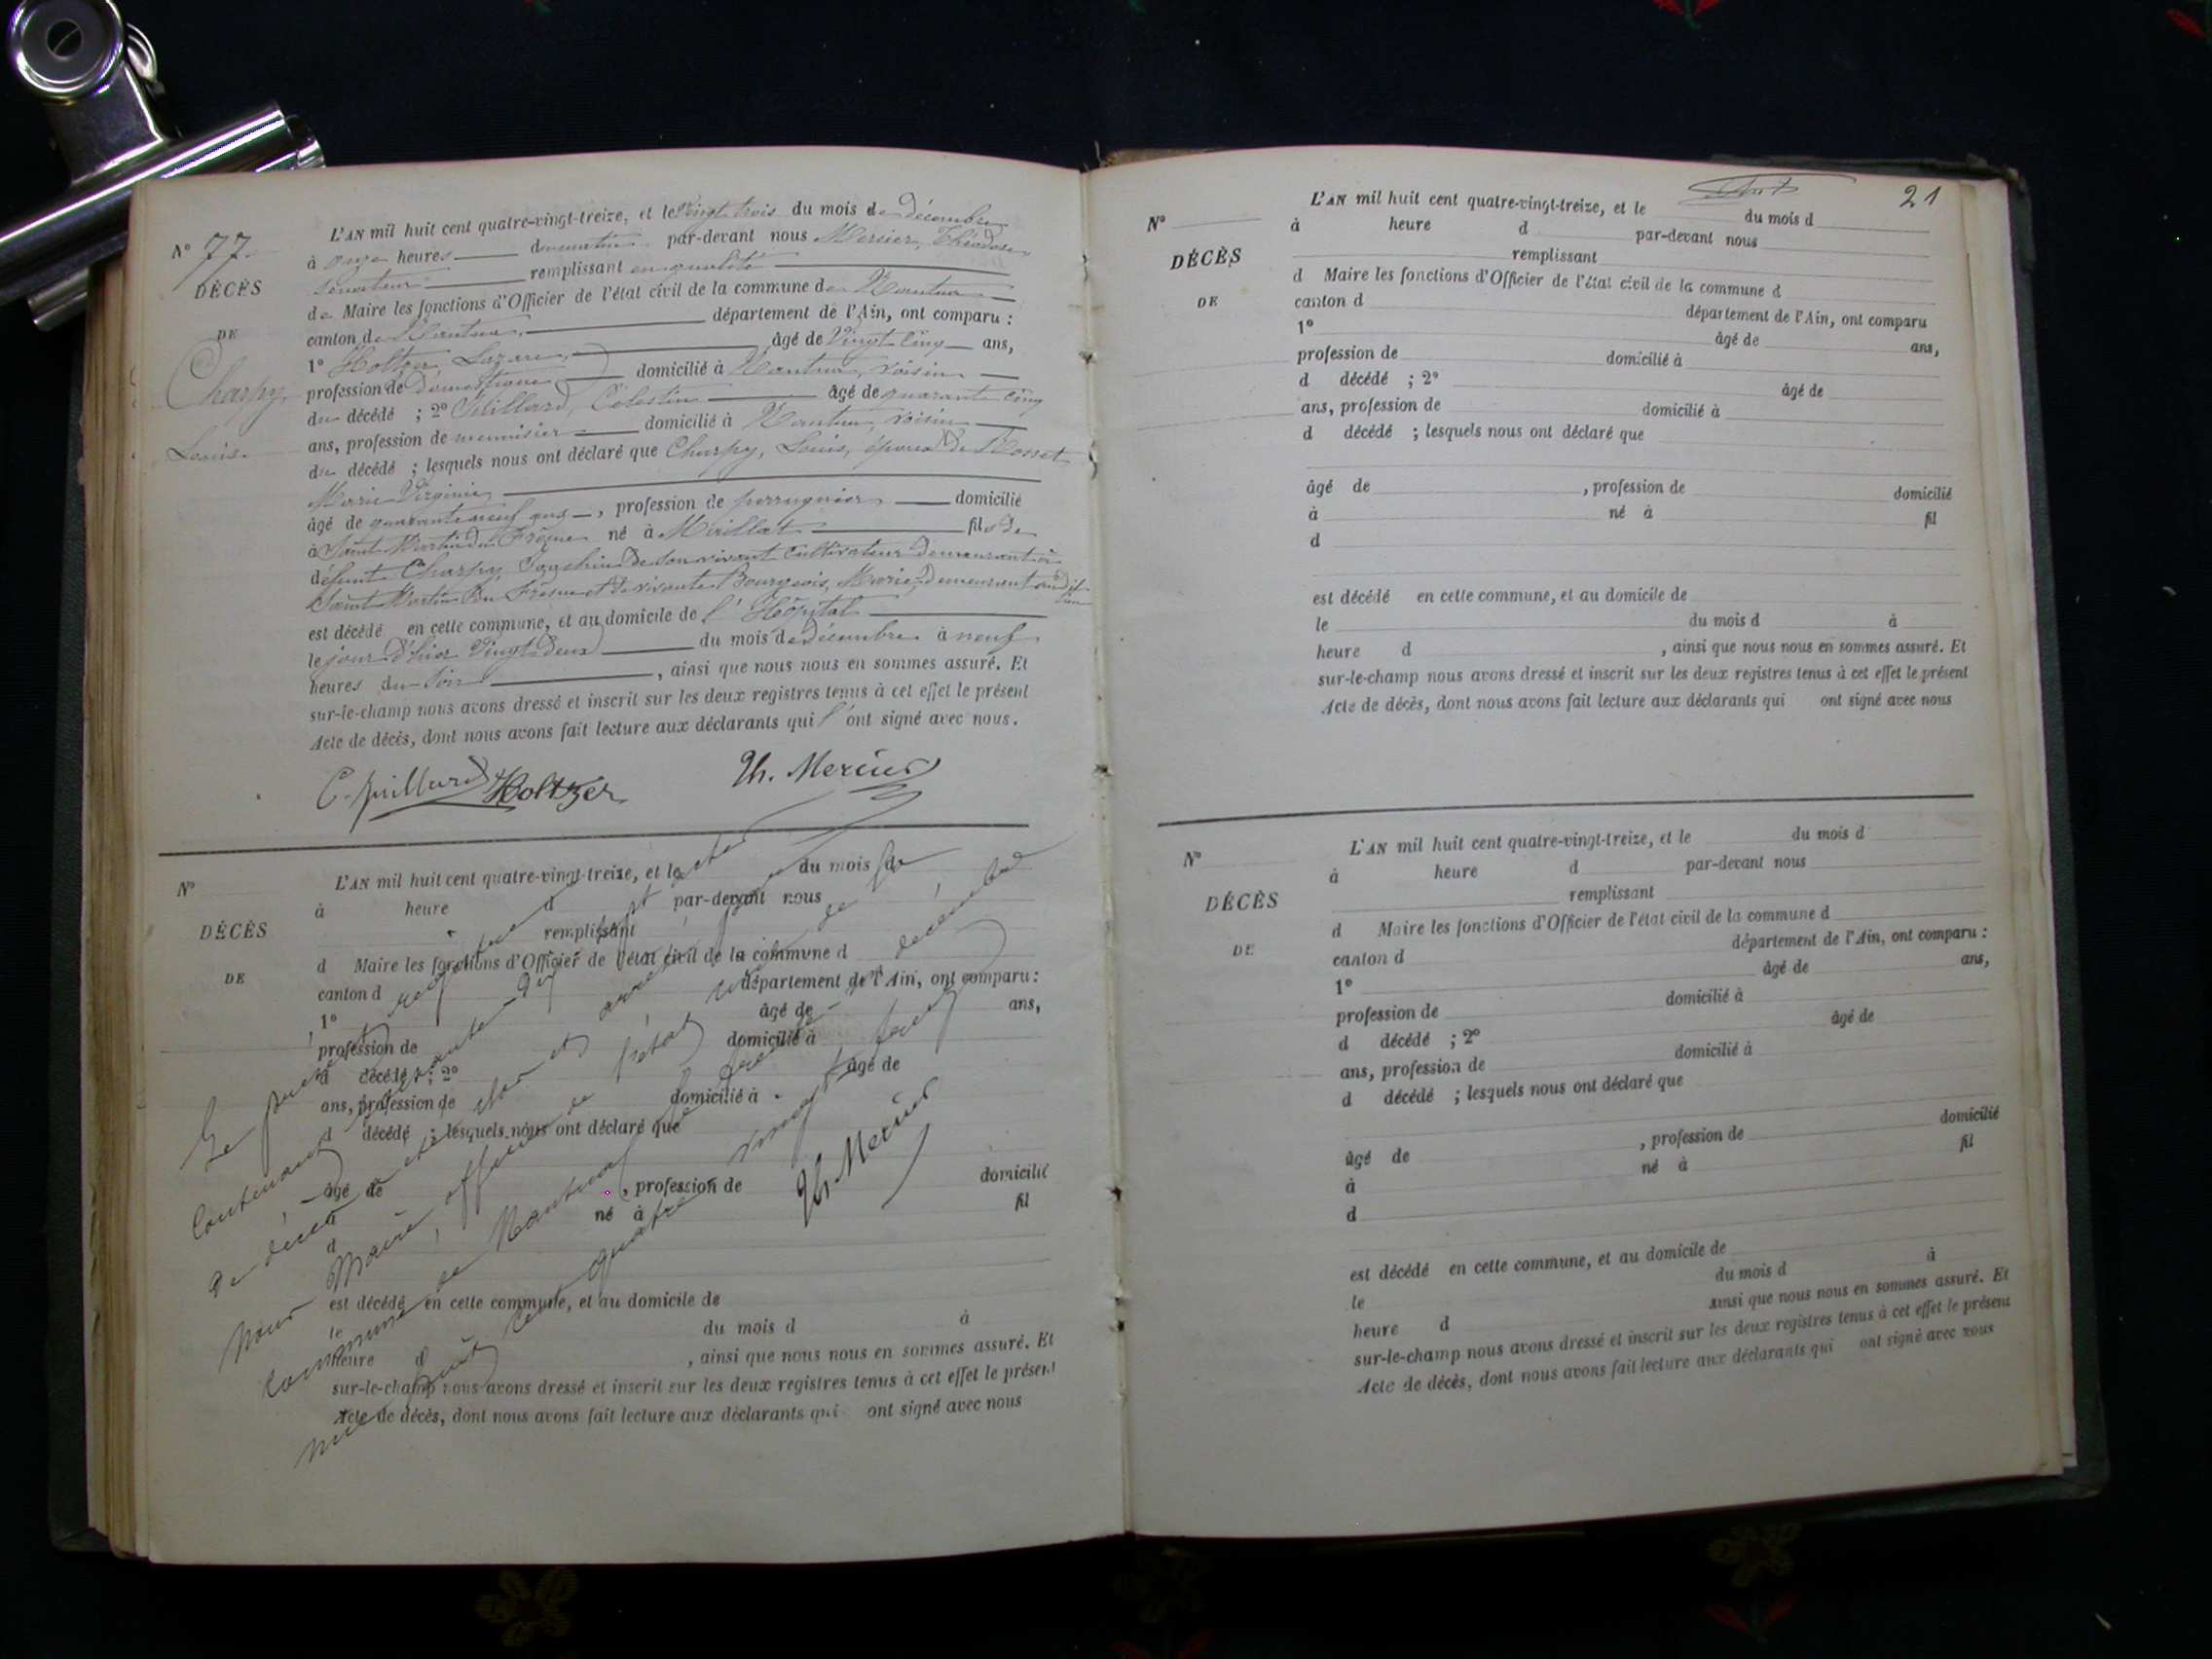 N° 77.
DÉCÈS
DE
Charpy,
Louis.
L'AN mil huit cent quatre-vingt-treize, et le Vingt trois du mois de Décembre
à onze heures du matin par-devant nous Mercier, Théodose
sénateur remplissant en qualité
de Maire les fonctions d'Officier de l'état civil de la commune de Nantua
canton de Nantua, département de l'Ain, ont comparu :
1° Holtzer, Lazare, âgé de Vingt cinq ans,
profession de domestique domicilié à Nantua, voisin
du décédé ; 2° Juillard, Célestin âgé de quarante cinq
ans, profession de menuisier domicilié à Nantua, voisin
du décédé ; lesquels nous ont déclaré que Charpy, Louis, époux de Mosset
Marie Virginie
âgé de quarante neuf ans, profession de perruquier domicilié
à Saint Martin du Frêsne né à Maillat fils de
défunt Charpy, Joachim de son vivant cultivateur demeurant à
Saint Martin du Frêsne et de vivante Bourgeois, Marie, demeurant au dit
lieu
est décédé en cette commune, et au domicile de l'Hôpital
le jour d'hier Vingt deux du mois de décembre à neuf
heures du soir, ainsi que nous nous en sommes assuré. Et
sur-le-champ nous avons dressé et inscrit sur les deux registres tenus à cet effet le présent
Acte de décès, dont nous avons fait lecture aux déclarants qui l'ont signé avec nous.
C. Juillard Holtzer Th. Mercier
N°
DÉCÈS
DE
L'AN mil huit cent quatre-vingt-treize, et le du mois de
à heure d par-devant nous
remplissant
d Maire les fonctions d'Officier de l'état civil de la commune d
canton d département de l'Ain, ont comparu :
1° âgé de ans,
profession de domicilié à
d décédé ; 2° âgé de
ans, profession de domicilié à
d décédé ; lesquels nous ont déclaré que
âgé de , profession de domicilié
à né à fil
d
est décédé en cette commune, et au domicile de
le du mois d à
heure d , ainsi que nous nous en sommes assuré. Et
sur-le-champ nous avons dressé et inscrit sur les deux registres tenus à cet effet le présent
Acte de décès, dont nous avons fait lecture aux déclarants qui ont signé avec nous
Le présent registre
contenant soixante-dix sept actes
de décès a été clos et arrêté par
Nous Maire, officier de l'état civil de la
commune de Nantua, le trente un décembre
mil huit cent quatre vingt treize
Th. Mercier
21
N°
DÉCÈS
DE
L'AN mil huit cent quatre-vingt-treize, et le du mois d
à heure d par-devant nous
remplissant
d Maire les fonctions d'Officier de l'état civil de la commune d
canton d département de l'Ain, ont comparu
1° âgé de ans,
profession de domicilié à
d décédé ; 2° âgé de
ans, profession de domicilié à
d décédé ; lesquels nous ont déclaré que
âgé de , profession de domicilié
à né à fil
d
est décédé en cette commune, et au domicile de
le du mois d à
heure d , ainsi que nous nous en sommes assuré. Et
sur-le-champ nous avons dressé et inscrit sur les deux registres tenus à cet effet le présent
Acte de décès, dont nous avons fait lecture aux déclarants qui ont signé avec nous
N°
DÉCÈS
DE
L'AN mil huit cent quatre-vingt-treize, et le du mois d
à heure d par-devant nous
remplissant
d Maire les fonctions d'Officier de l'état civil de la commune d
canton d département de l'Ain, ont comparu :
1° âgé de ans,
profession de domicilié à
d décédé ; 2° âgé de
ans, profession de domicilié à
d décédé ; lesquels nous ont déclaré que
âgé de , profession de domicilié
à né à fil
d
est décédé en cette commune, et au domicile de
le du mois d à
heure d ainsi que nous nous en sommes assuré. Et
sur-le-champ nous avons dressé et inscrit sur les deux registres tenus à cet effet le présent
Acte de décès, dont nous avons fait lecture aux déclarants qui ont signé avec nous